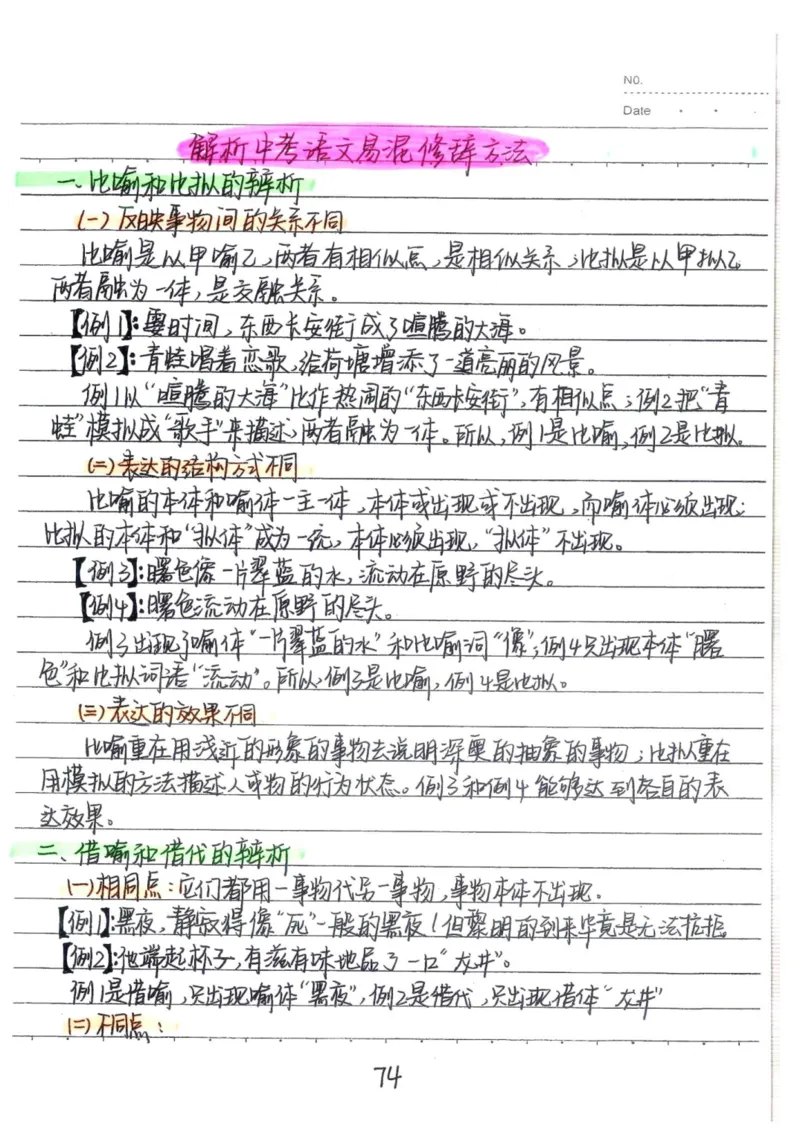 NO.
Date
解析中考语文易混修辞方法
一、比喻和比拟的辨析
(一)反映事物间的关系不同
比喻是以甲喻乙,两者有相似点,是相似关系;比拟是以甲拟乙
两者融为一体,是交融关系。
【例1】:霎时间,东西长安街成了喧腾的大海。
【例2】:青蛙唱着恋歌,给荷塘增添了一道亮丽的风景。
例1以“喧腾的大海”比作热闹的“东西长安街”,有相似点;例2把“青
蛙”模拟成“歌手”来描述,两者融为一体。所以,例1是比喻,例2是比拟。
(二)表达的结构方式不同
比喻的本体和喻体一主一体,本体或出现或不出现,而喻体必须出现;
比拟的本体和“拟体”成为一统,本体必须出现,“拟体”不出现。
【例3】:曙色像一片翠蓝的水,流动在原野的尽头。
【例4】:曙色流动在原野的尽头。
例3出现了喻体“一片翠蓝的水”和比喻词“像”;例4只出现本体“曙
色”和比拟词语“流动”。所以,例3是比喻,例4是比拟。
(三)表达的效果不同
比喻重在用浅近的形象的事物去说明深奥的抽象的事物;比拟重在
用模拟的方法描述人或物的行为状态。例3和例4能够达到各自的表
达效果。
二、借喻和借代的辨析
(一)相同点:它们都用一事物代另一事物,事物本体不出现.
【例1】:黑夜,静寂得像“死”一般的黑夜!但黎明的到来毕竟是无法抗拒
【例2】:他端起杯子,有滋有味地品了一口“龙井”。
例1是借喻,只出现喻体“黑夜”,例2是借代,只出现借体“龙井”
(二)不同点:
74